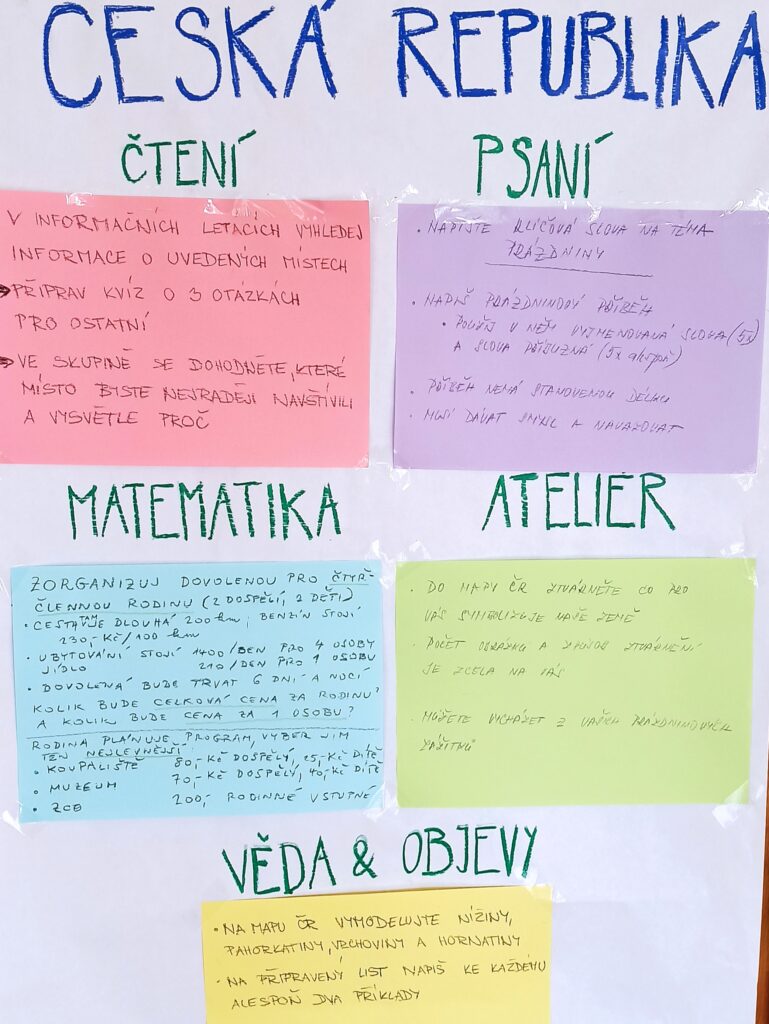 ČESKÁ REPUBLIKA
ČTENÍ
V INFORMAČNÍCH LETÁCÍCH VYHLEDEJ
INFORMACE O UVEDENÝCH MÍSTECH
PŘIPRAV KVÍZ O 3 OTÁZKÁCH
PRO OSTATNÍ
VE SKUPINĚ SE DOHODNĚTE, KTERÉ
MÍSTO BYSTE NEJRADĚJI NAVŠTÍVILI
A VYSVĚTLE PROČ
PSANÍ
• NAPIŠTE KLÍČOVÁ SLOVA NA TÉMA
PRÁZDNINY
• NAPIŠ PRÁZDNINOVÝ PŘÍBĚH
• POUŽIJ V NĚM VYJMENOVANÁ SLOVA (5x)
A SLOVA PŘÍBUZNÁ (5x alespoň)
• PŘÍBĚH NEMÁ STANOVENOU DÉLKU
• MUSÍ DÁVAT SMYSL A NAVAZOVAT
MATEMATIKA
ZORGANIZUJ DOVOLENOU PRO ČTYŘ-
ČLENNOU RODINU (2 DOSPĚLÍ, 2 DĚTI)
• CESTA JE DLOUHÁ 200 km, BENZÍN STOJÍ
230,- Kč/100 km
• UBYTOVÁNÍ STOJÍ 1400/DEN PRO 4 OSOBY
JÍDLO 210/DEN PRO 1 OSOBU
• DOVOLENÁ BUDE TRVAT 6 DNÍ A NOCÍ
KOLIK BUDE CELKOVÁ CENA ZA RODINU?
A KOLIK BUDE CENA ZA 1 OSOBU?
RODINA PLÁNUJE PROGRAM, VYBER JIM
TEN NEJLEVNĚJŠÍ:
• KOUPALIŠTĚ 80,- Kč DOSPĚLÝ, 25,- Kč DÍTĚ
• MUZEUM 70,- Kč DOSPĚLÝ, 40,- Kč DÍTĚ
• ZOO 200,- RODINNÉ VSTUPNÉ
ATELIÉR
• DO MAPY ČR ZTVÁRNĚTE CO PRO
VÁS SYMBOLIZUJE NAŠE ZEMĚ
• POČET OBRÁZKŮ A ZPŮSOB ZTVÁRNĚNÍ
JE ZCELA NA VÁS
• MŮŽETE VYCHÁZET Z VAŠICH PRÁZDNINOVÝCH
ZÁŽITKŮ
VĚDA & OBJEVY
• NA MAPU ČR VYMODELUJTE NÍŽINY,
PAHORKATINY, VRCHOVINY A HORNATINY
• NA PŘIPRAVENÝ LIST NAPIŠ KE KAŽDÉMU
ALESPOŇ DVA PŘÍKLADY